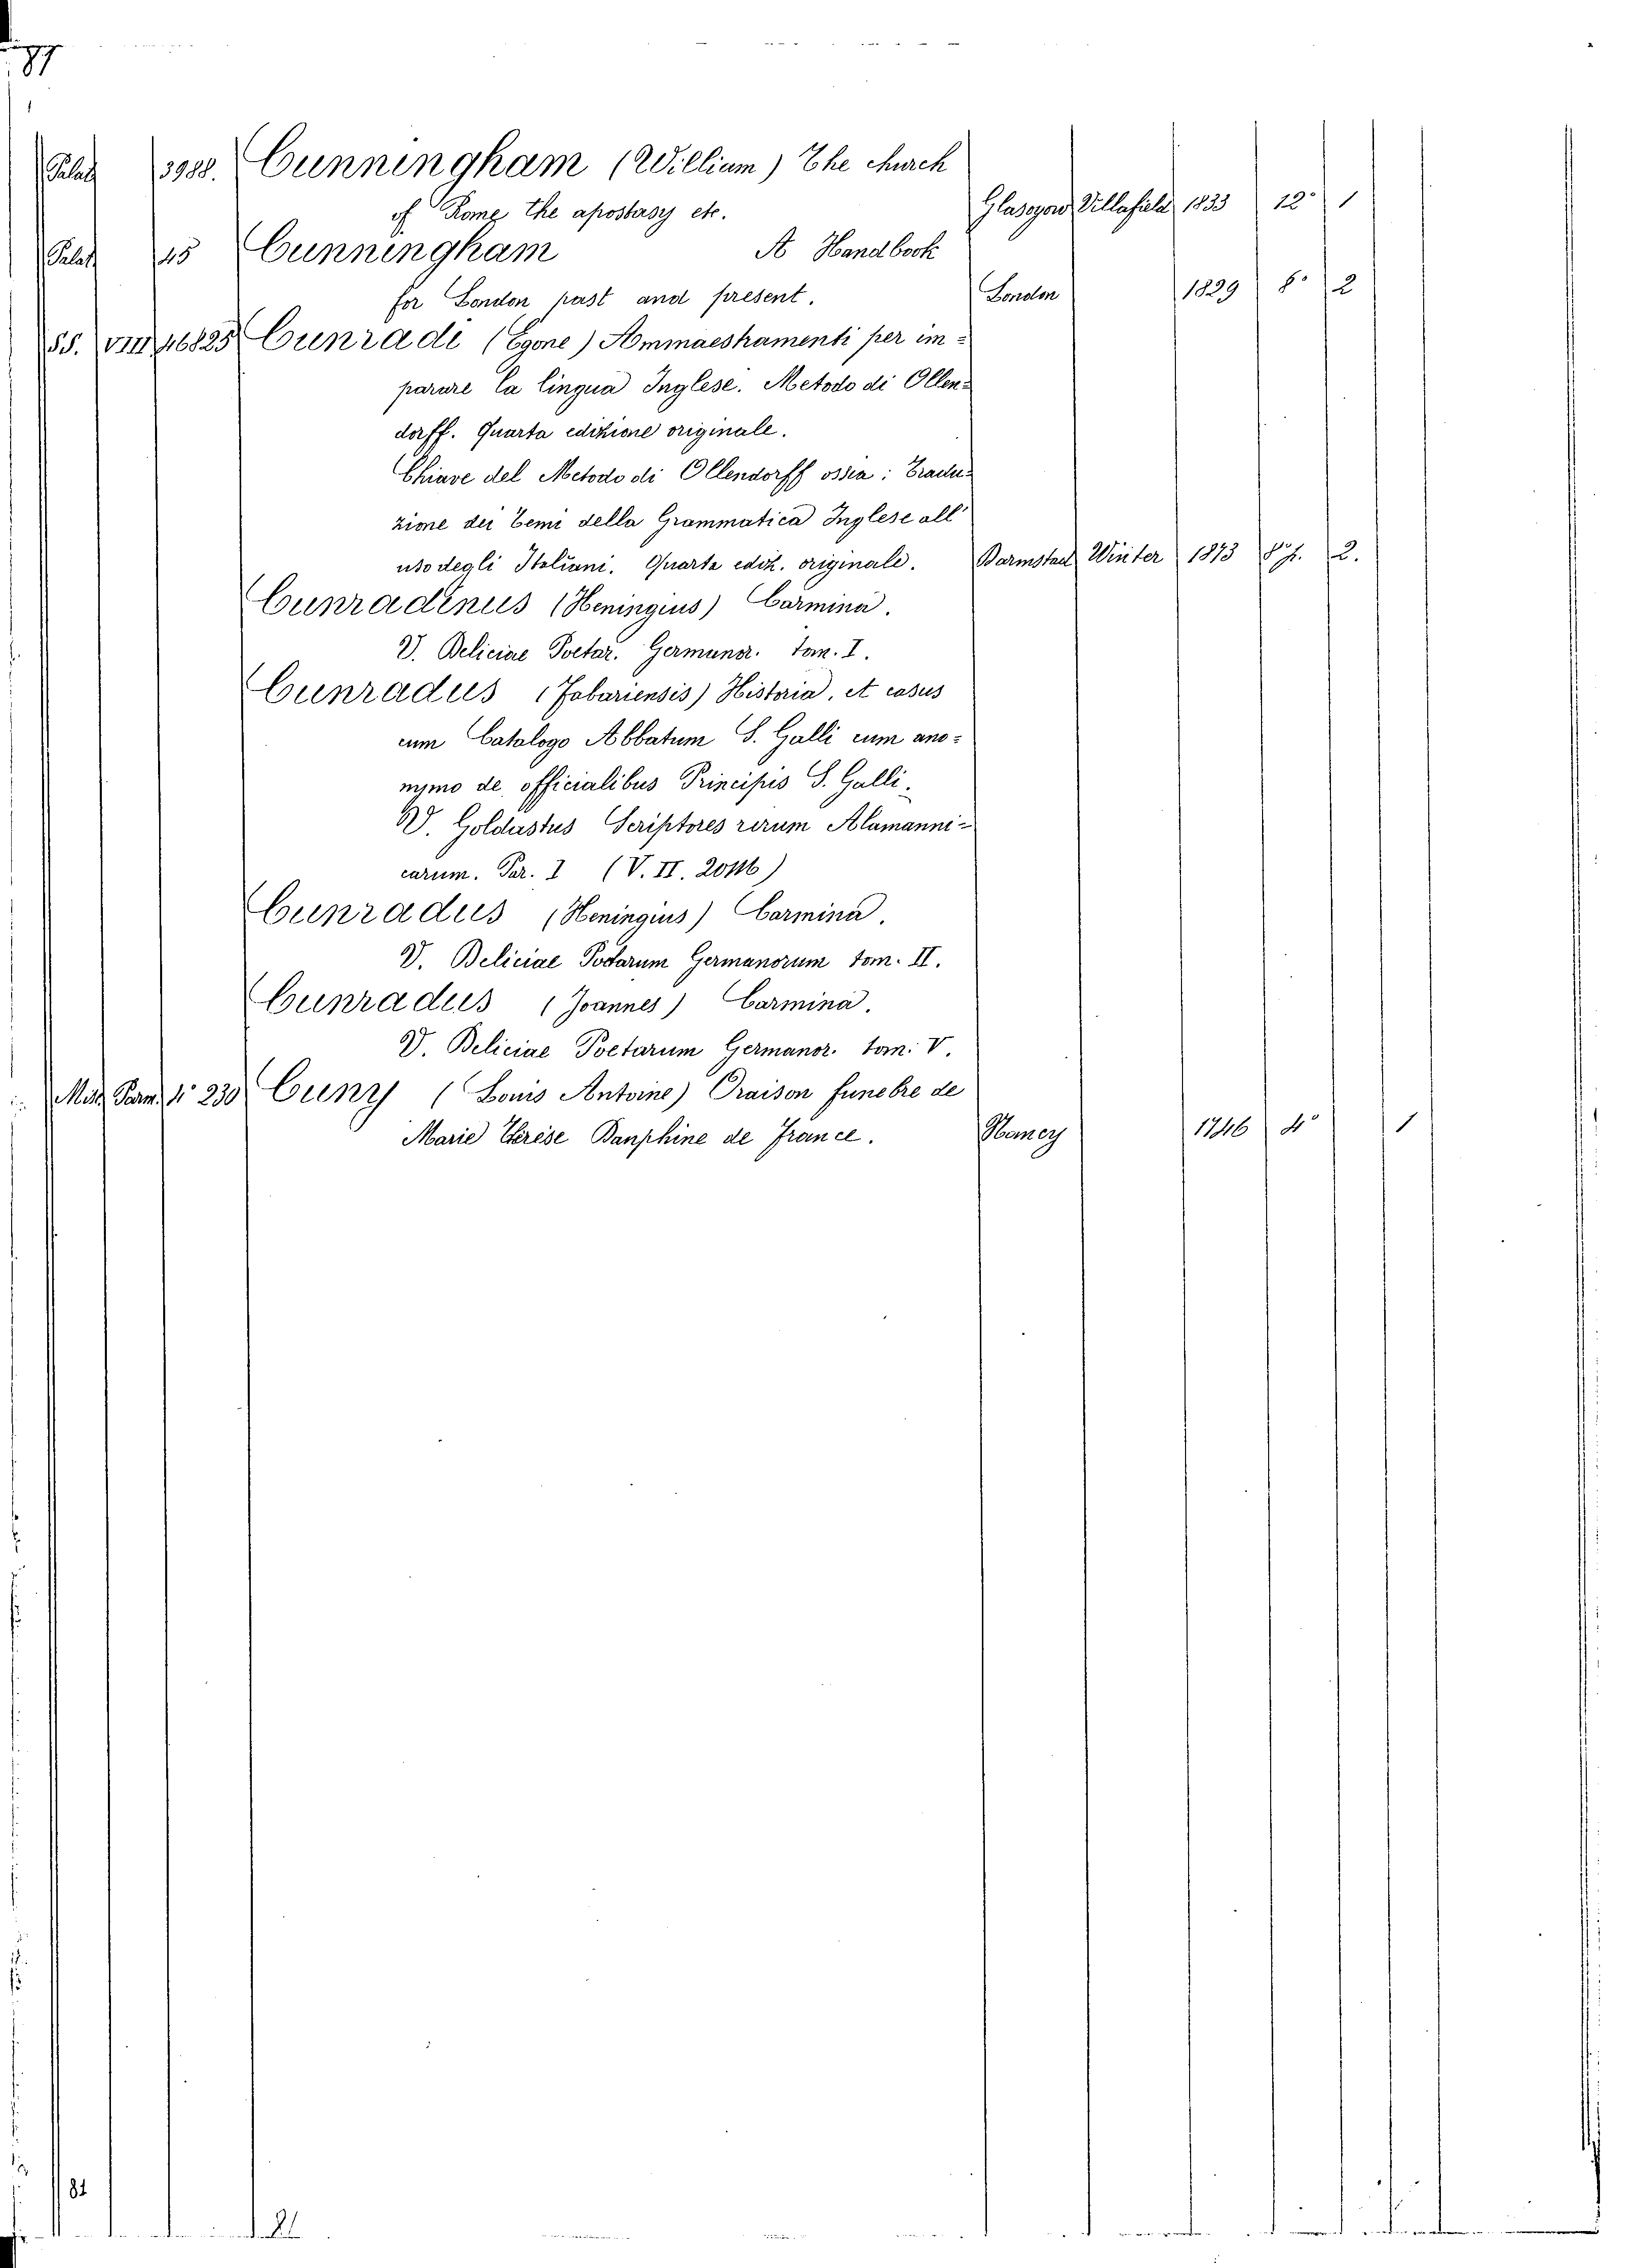 87
Palat 3988. Cunningham (William) The church
of Rome the apostasy etc. Glasgow Villafield 1833 12° 1
Palat 45 Cunningham A Handbook
for London past and present. London 1829 8° 2
55. VIII 46825 Cunradi (Egone) Ammaestramenti per im=
parare la lingua Inglese. Metodo di Ollen=
dorff. Quarta edizione originale.
Chiave del Metodo di Ollendorff ossia: Tradu=
zione dei Temi della Grammatica Inglese all'
uso degli Italiani. Quarta ediz. originale. Darmstad Winter 1873 8° 2.
Cunradinus (Heningius) Carmina.
V. Deliciae Poetar. Germanor. tom. I.
Cunradus (Fabariensis) Historia, et casus
cum Catalogo Abbatum S. Galli cum ano=
nymo de officialibus Principis S. Galli.
V. Goldastus Scriptores rerum Alamanni=
carum. Par. I (V. II. 20116)
Cunradus (Heningius) Carmina.
V. Deliciae Poetarum Germanorum tom. II.
Cunradus (Joannes) Carmina.
V. Deliciae Poetarum Germanor. tom. V.
Misc. Parm. 4° 230 Cuny (Louis Antoine) Oraison funebre de
Marie Thérèse Dauphine de France. Nancy 1746 4° 1
81
81